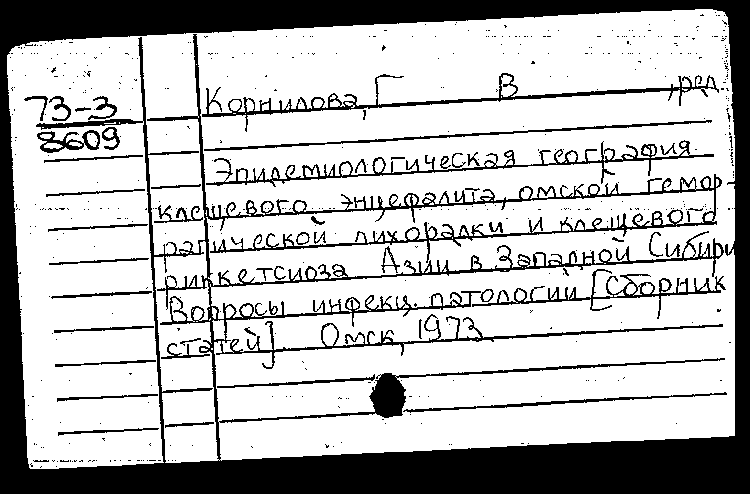 73-3
8609
Корнилова, Г В , ред.
Эпидемиологическая география
клещевого энцефалита, омской гемор-
рагической лихорадки и клещевого
риккетсиоза Азии в Западной Сибири
Вопросы инфекц. патологий [Сборник
статей]. Омск, 1973.